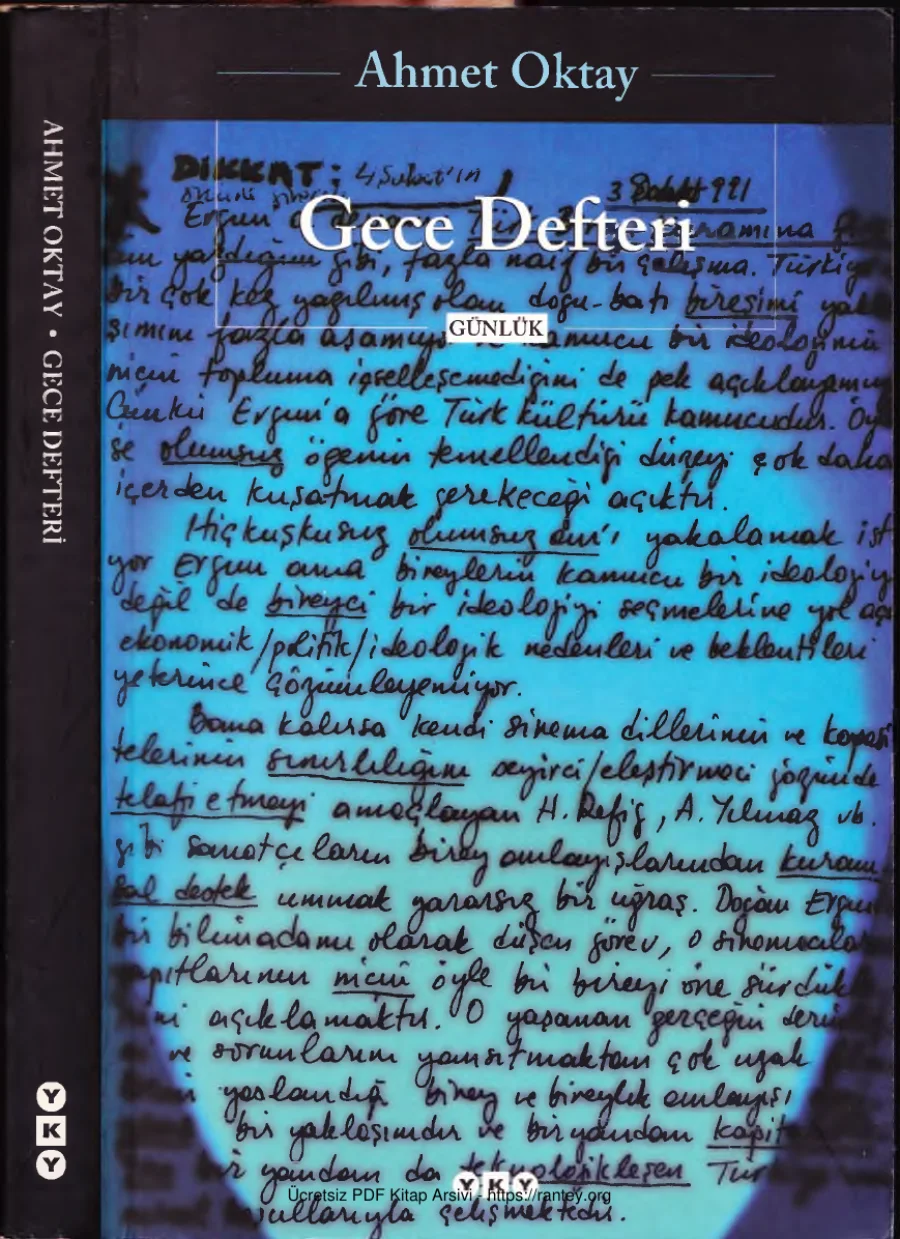 Ahmet Oktay
AHMET OKTAY • GECE DEFTERİ
DİKKAT: 4 Şubat'ın
3 Şubat 991
Gece Defteri
Ergun'
yazdığım gibi, fazla naif bir çalışma. Türkiy
Bir çok kez yapılmış olan doğu-batı bireşimi yak
GÜNLÜK
şımını fazla aşamıyo kamucu bir ideolojinin
niçin topluma içselleşemediğini de pek açıklayamıy
Çünkü Ergun'a göre Türk kültürü kamucudur. Öy
se olumsuz ögenin temellendiği düzeyi çok daha
içerden kuşatmak gerekeceği açıktır.
Hiç kuşkusuz olumsuz an'ı yakalamak ist
yor Ergun ama bireylerin kamucu bir ideolojiyi
değil de bireyci bir ideolojiyi seçmelerine yol aça
ekonomik/politik/ideolojik nedenleri ve beklentileri
yeterince çözümleyemiyor.
Bana kalırsa kendi sinema dillerinin ve kapasi
telerinin sınırlılığını seyirci/eleştirmeci gözünde
telafi etmeyi amaçlayan H. Refiğ, A. Yılmaz vb.
gibi sanatçıların birey anlayışlarından kuram
sal destek ummak yararsız bir uğraş. Doğan Ergun
bir bilimadamı olarak düşen görev, o sinemacılar
pıtlarının niçin öyle bir bireyi öne sürdük
ni açıklamaktır. O yaşanan gerçeğin derin
ve sorunlarını yansıtmaktan çok uzak
yaslandığı birey ve bireylik anlayışı
bir yaklaşımdır ve bir yandan kapit
r yandan da teknolojikleşen Tür
YKY
Ücretsiz PDF Kitap Arsivi - https://rantey.org
ullarıyla gelişmektedir.
YKY